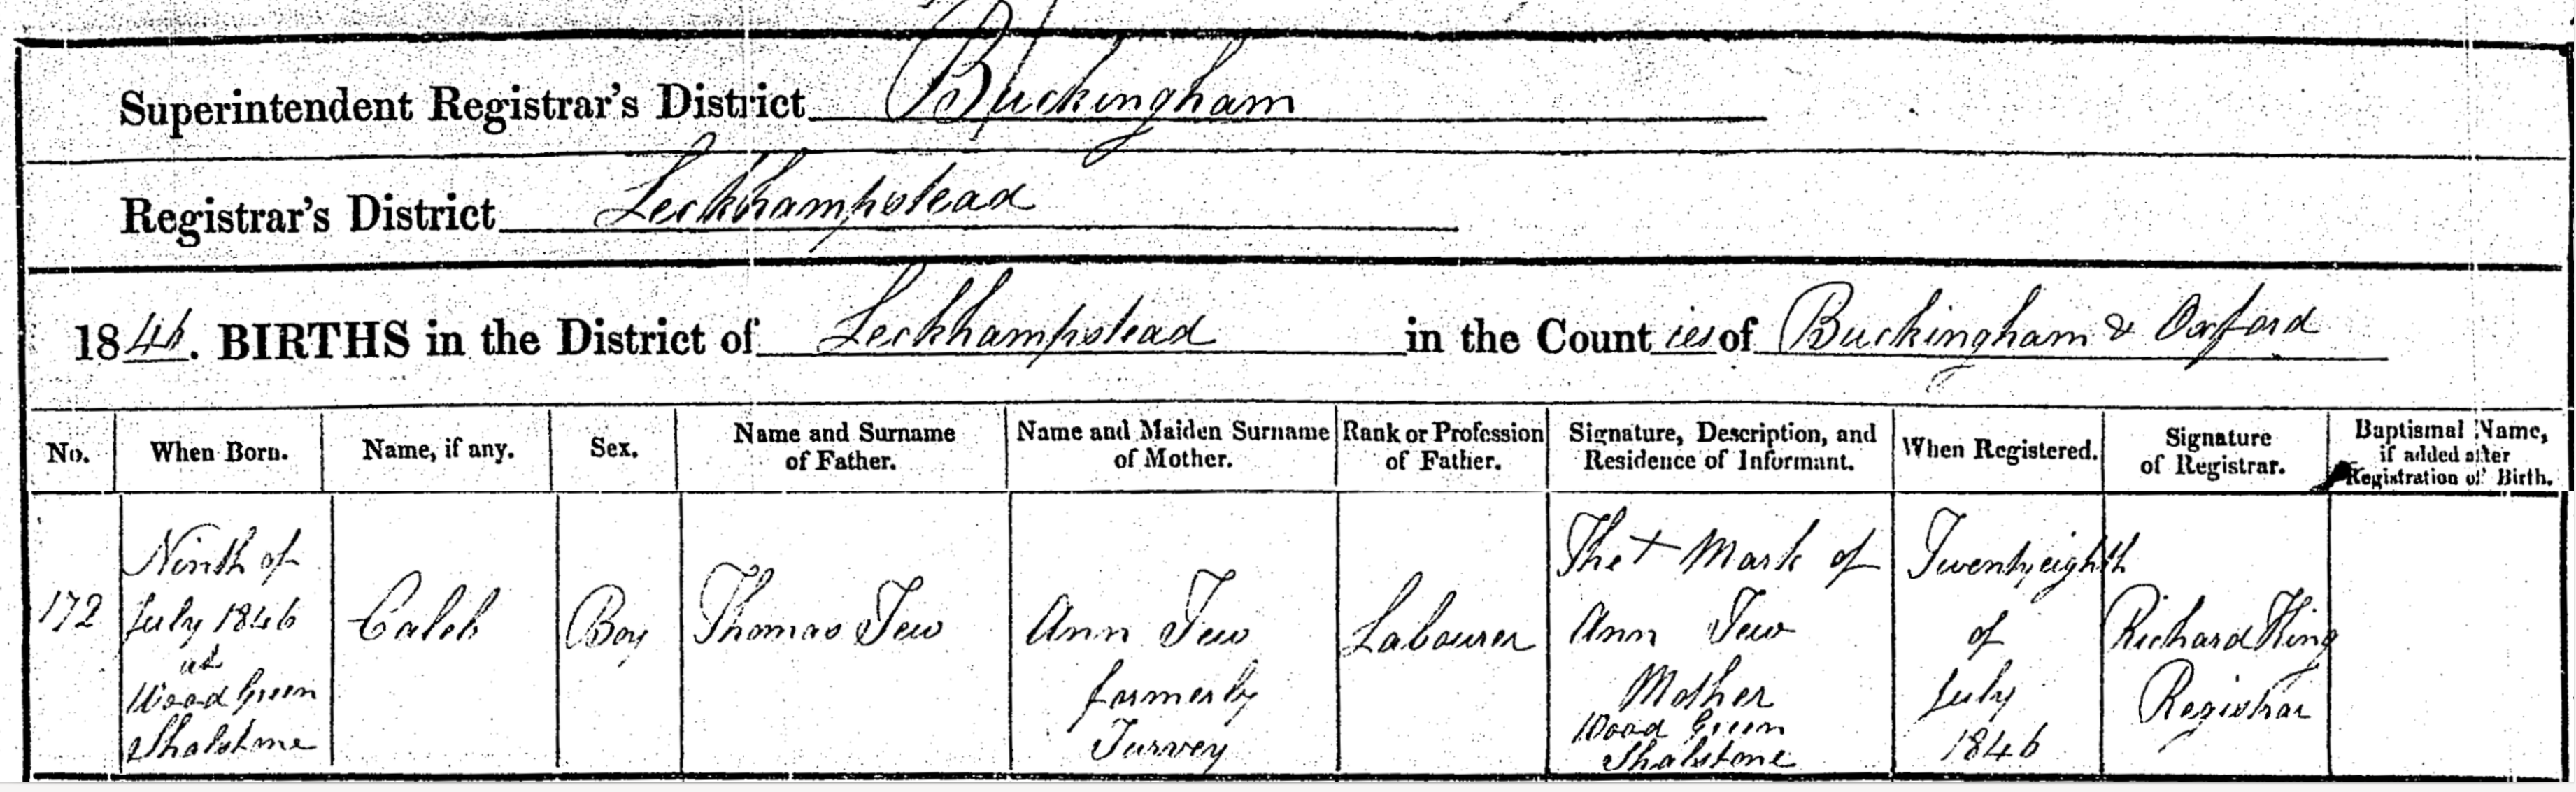 Superintendent Registrar's District Buckingham
Registrar's District Leckhampstead
1846. BIRTHS in the District of Leckhampstead in the Counties of Buckingham & Oxford
No. When Born. Name, if any. Sex. Name and Surname of Father. Name and Maiden Surname of Mother. Rank or Profession of Father. Signature, Description, and Residence of Informant. When Registered. Signature of Registrar. Baptismal Name, if added after Registration of Birth.
172
Ninth of
July 1846
at
Wood Green
Shalstone
Caleb
Boy
Thomas Tew
Ann Tew
formerly
Turvey
Labourer
The + Mark of
Ann Tew
Mother
Wood Green
Shalstone
Twentyeighth
of
July
1846
Richard King
Registrar